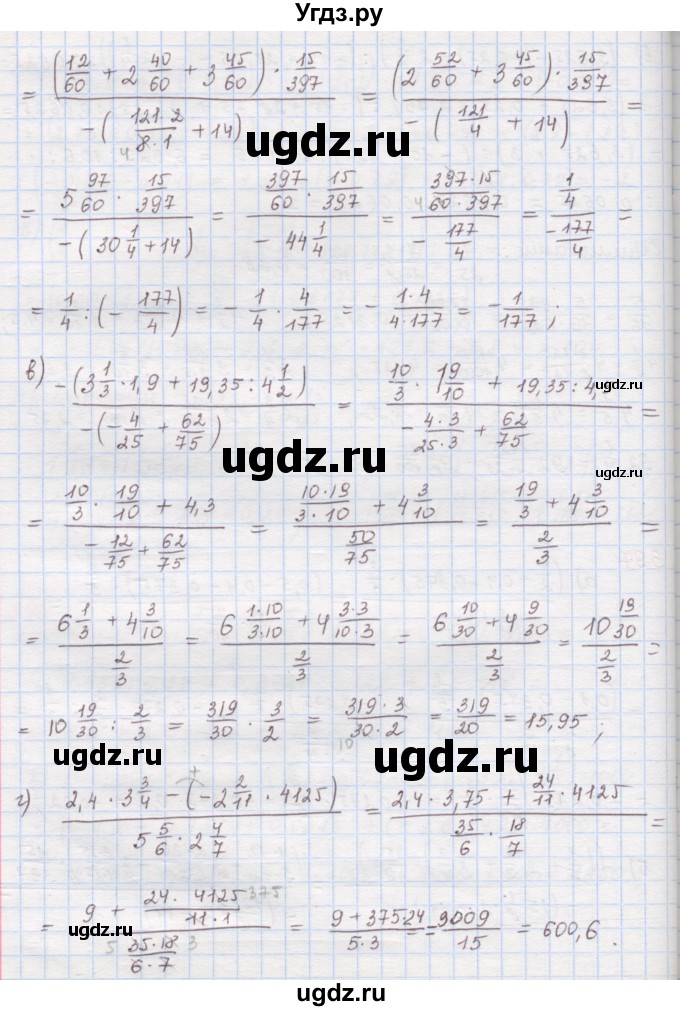 Угдз.ру
= ((12/60 + 2 40/60 + 3 45/60) · 15/397) / (−(121·2/8·1 + 14)) = ((2 52/60 + 3 45/60) · 15/397) / (−(121/4 + 14)) =
4
ugdz.ru
= (5 97/60 · 15/397) / (−(30 1/4 + 14)) = (397/60 · 15/397) / (−44 1/4) = (397·15/60·397) / (−177/4) = (1/4) / (−177/4) =
4
= 1/4 : (−177/4) = −1/4 · 4/177 = −1·4/4·177 = −1/177 ;
в) −(3 1/3 · 1,9 + 19,35 : 4 1/2) / (−(−4/25 + 62/75)) = (10/3 · 1 9/10 + 19,35 : 4,) / (−4·3/25·3 + 62/75) =
ugdz.ru
ugdz.ru
= (10/3 · 19/10 + 4,3) / (−12/75 + 62/75) = (10·19/3·10 + 4 3/10) / (50/75) = (19/3 + 4 3/10) / (2/3) =
= (6 1/3 + 4 3/10) / (2/3) = (6 1·10/3·10 + 4 3·3/10·3) / (2/3) = (6 10/30 + 4 9/30) / (2/3) = (10 19/30) / (2/3) =
= 10 19/30 : 2/3 = 319/30 · 3/2 = 319·3/30·2 = 319/20 = 15,95 ;
10
ugdz.ru
ugdz.ru
г) (2,4 · 3 3/4 − (−2 2/11 · 4125)) / (5 5/6 · 2 4/7) = (2,4 · 3,75 + 24/11 · 4125) / (35/6 · 18/7) =
+
= (9 + 24·4125/11·1) / (35·18/6·7) = (9 + 375·24) / (5·3) = 9009/15 = 600,6 .
375
5 3
ugdz.ru
ugdz.ru